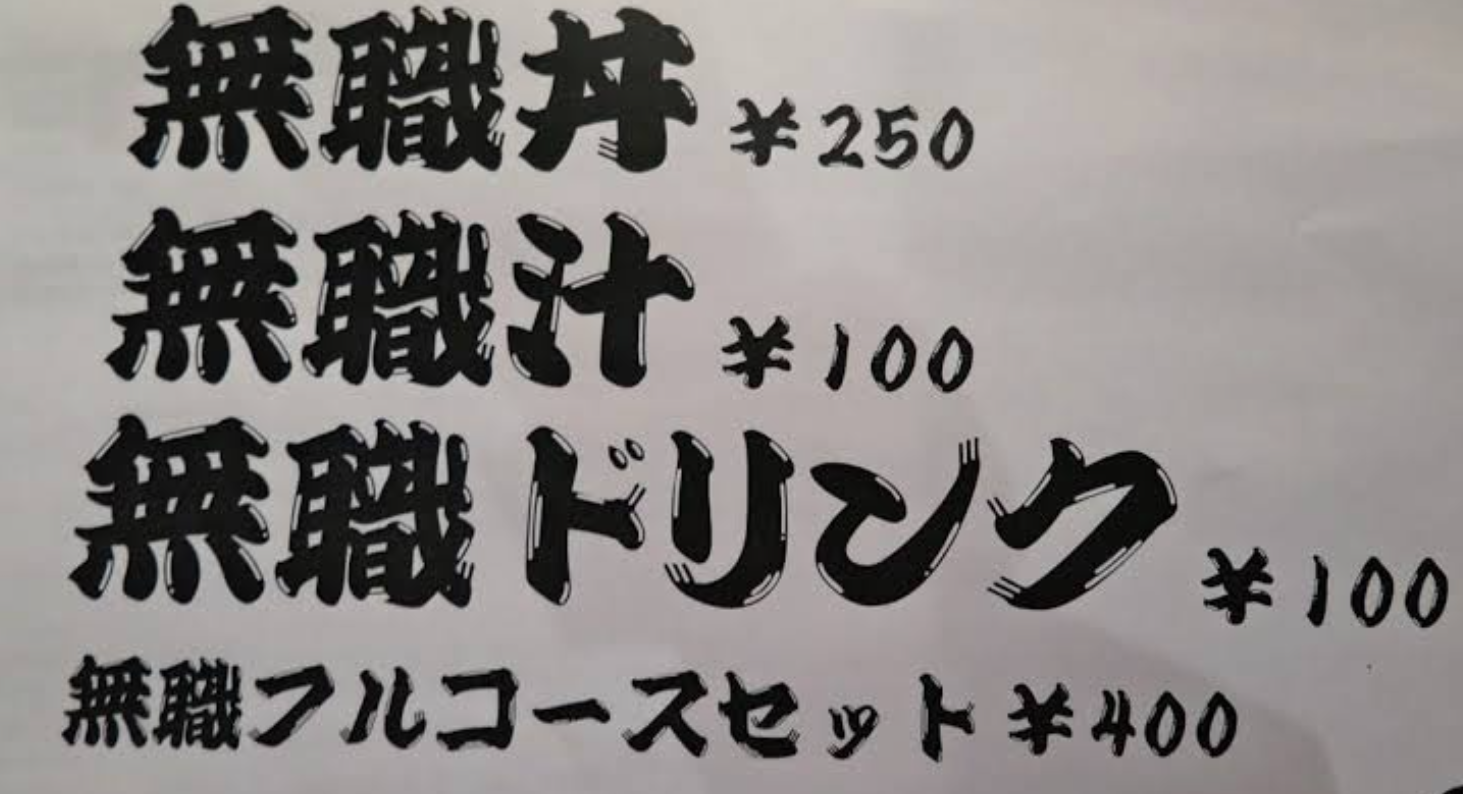 無職丼 ¥250
無職汁 ¥100
無職ドリンク ¥100
無職フルコースセット ¥400